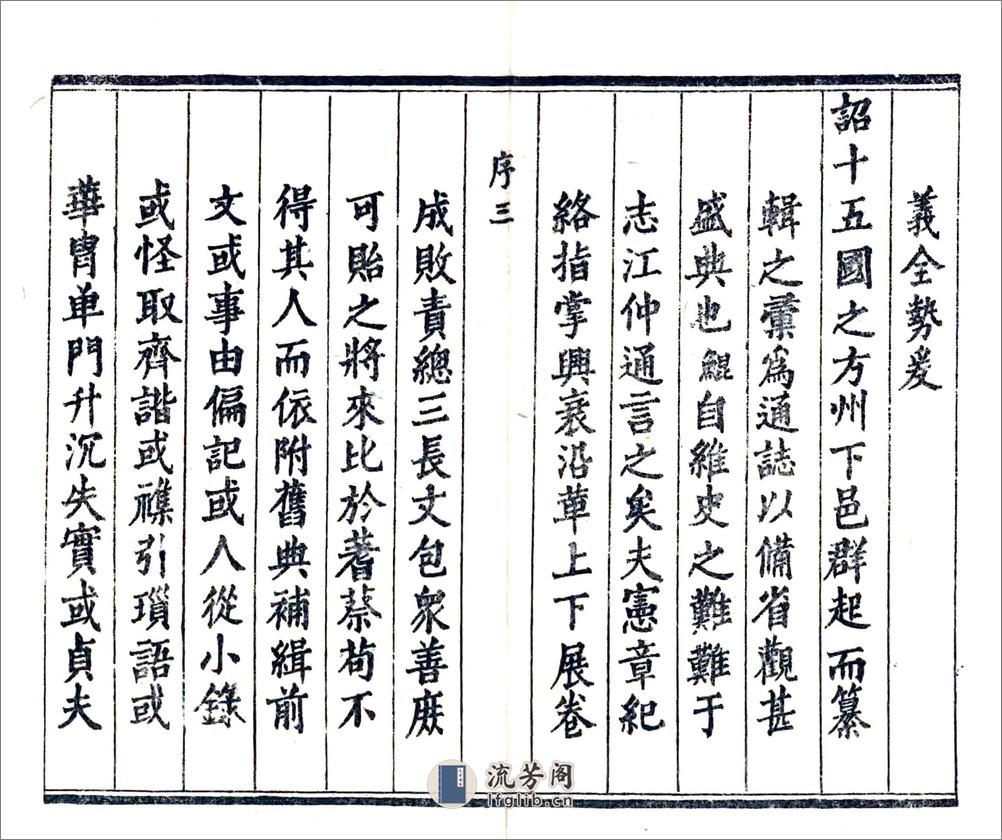 義全勢爰
詔十五國之方州下邑群起而纂
輯之彙爲通誌以備省觀甚
盛典也鯤自維史之難難于
志江仲通言之矣夫憲章紀
絡指掌興衰沿革上下展卷
序三
成敗責總三長文包衆善庶
可貽之將來比於蓍蔡苟不
得其人而依附舊典補緝前
文或事由偏記或人從小錄
或怪取齊諧或襍引瑣語或
華胄单門升沉失實或貞夫
流芳阁
lfglib.cn